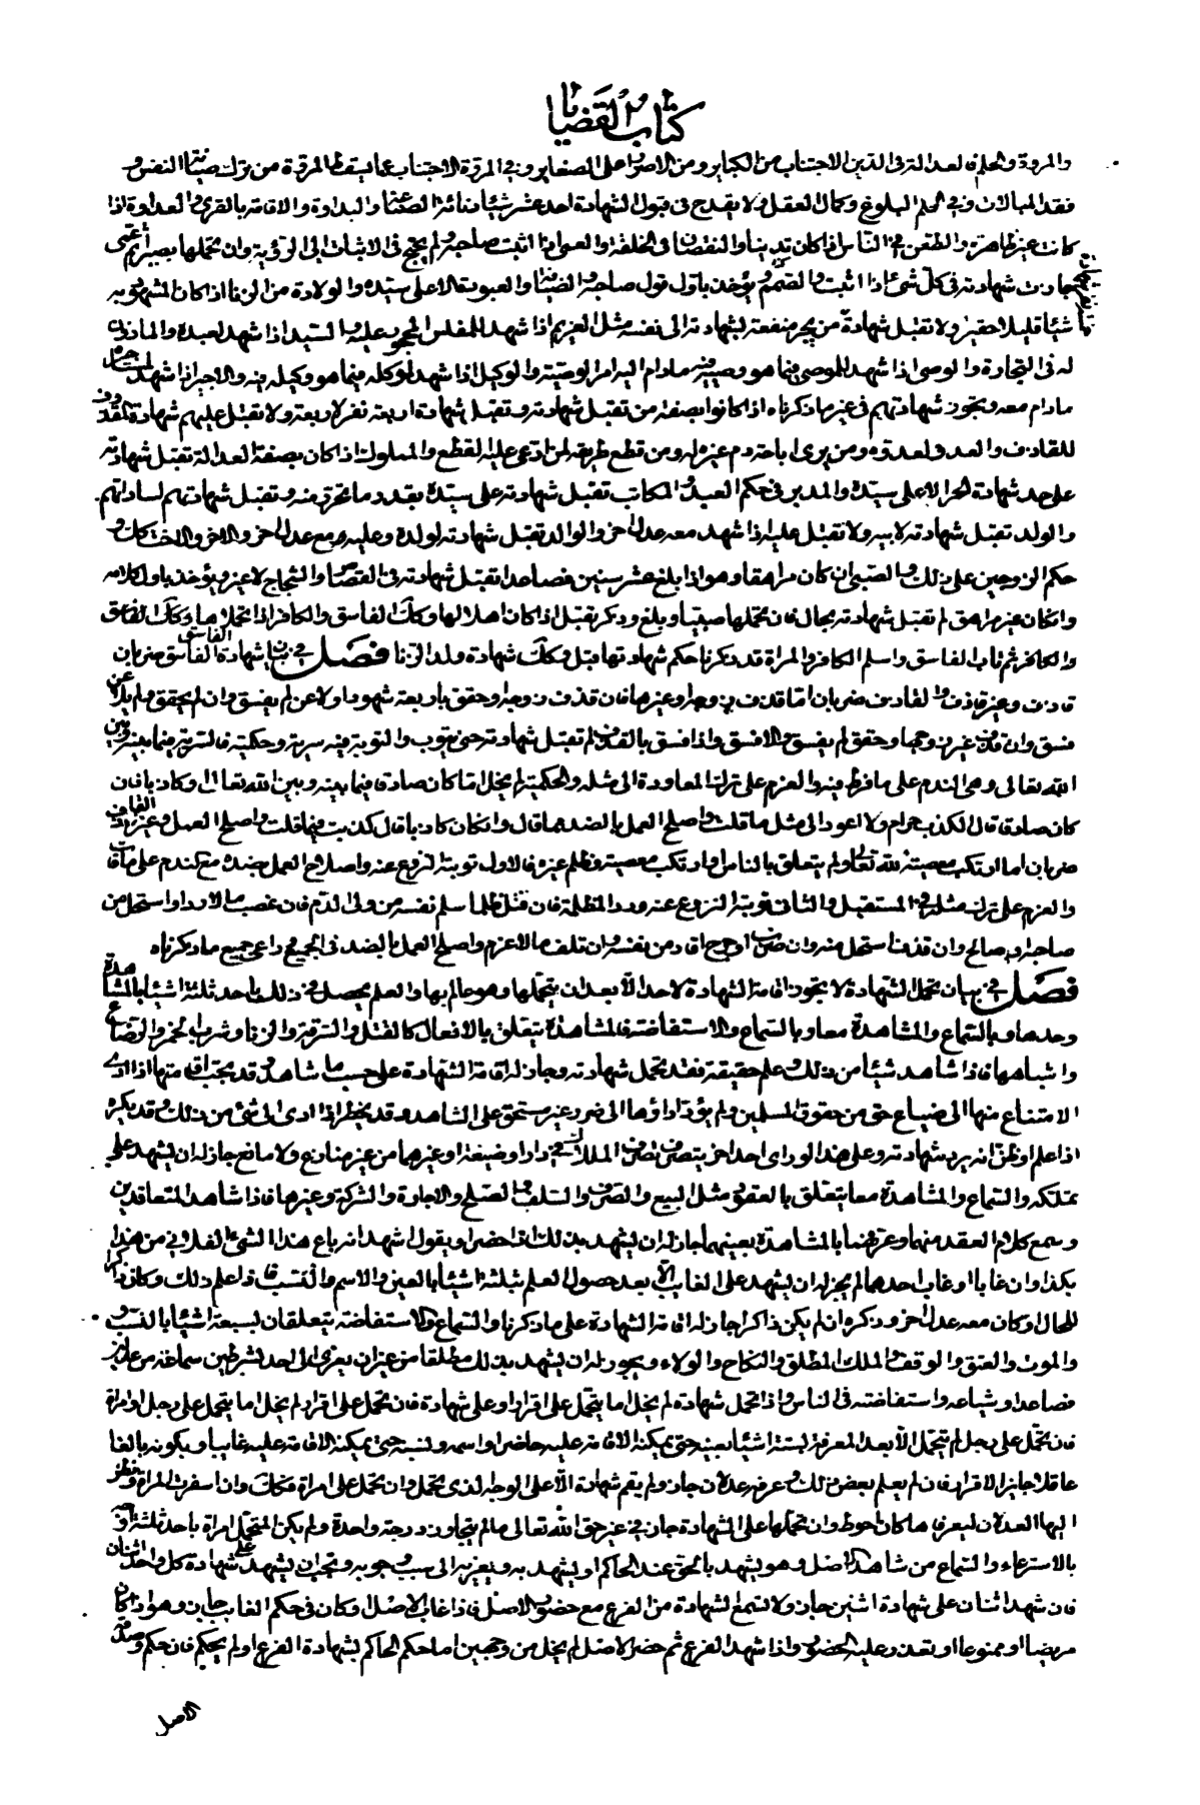 كتاب القضايا
والمروة والحكم فالعدالة في الدين الاجتناب من الكباير ومن الاصرار على الصغاير وفي المروة الاجتناب عما يسقط المروة من ترك صيانة النفس و
فقد المبالات وفي الحكم البلوغ وكمال العقل ولا يقدح في قبول الشهادة احد عشر شيئا دنائة الصناعة والبداوة والاقامة بالقرى والعداوة اذا
كانت غير ظاهرة والطعن في الناس اذا كان تدينا والنقصان في الخلقة والعمى اذا اثبت صاحبه ولم يحتج في الاثبات الى الرؤية وان تحملها بصيرا ثم عمى
جازت شهادته في كل شيء اذا اثبت والصمم ويؤخذ باول قول صاحبه والضيافة والعبودة الا على سيده والولادة من الزنا اذا كان المشهود به
شيئا قليلا حقيرا ولا تقبل شهادة من يجر منفعة بشهادته الى نفسه مثل الغريم اذا شهد للمفلس المحجور عليه والسيد اذا شهد لعبده والماذون
له في التجارة والوصى اذا شهد للموصى فيما هو وصى فيه مادام اليه امر الوصية والوكيل اذا شهد لموكله فيما هو وكيله فيه والاجير اذا شهد لمستاجره
مادام معه وتجوز شهادتهم في غير ما ذكرناه اذا كانوا بصفة من تقبل شهادته وتقبل شهادة اربعة نفر لاربعة ولا تقبل عليهم شهادة المقذوف
للقاذف والعدو لعدوه ومن يرى اباحة دم غيره له ومن قطع طريقه لمن ادعى عليه القطع والمملوك اذا كان بصفة العدالة تقبل شهادته
على حد شهادة الحر الا على سيده والمدبر في حكم العبد والمكاتب تقبل شهادته على سيده بقدر ما تحرر منه وتقبل شهادتهم لساداتهم
والولد تقبل شهادته لابيه ولا تقبل عليه اذا شهد معه عدل اخر والوالد تقبل شهادته لولده وعليه مع عدل اخر والاخ والاخت كك و
حكم الزوجين على ذلك والصبي ان كان مراهقا وهو اذا بلغ عشر سنين فصاعدا تقبل شهادته في القصاص والشجاج لا غير ويؤخذ باول كلامه
وان كان غير مراهق لم تقبل شهادته بحال فان تحملها صبيا وبلغ وذكر يقبل اذا كان اهلا لها وكك الفاسق والكافر اذا تحملاها وكك الفاسق
والكافر ثم تاب الفاسق واسلم الكافر والمراة قد ذكرنا حكم شهادتها قبل وكك شهادة ولد الزنا فصل في بيان شهادة الفاسق الفاسق ضربان
قاذف وغير قاذف والقاذف ضربان اما قذف زوجه او غيرها فان قذف زوجه او حقق باربعة شهود او لاعن لم يفسق وان لم يحقق ولم يلاعن
فسق وان قذف غير زوجها وحقق لم يفسق والا فسق واذا فسق بالقذف لم تقبل شهادته حتى يتوب والتوبة فيه سرية وحكمية فالسرية فيما بينه وبين
الله تعالى وهي الندم على ما فرط فيه والعزم على ترك المعاودة الى مثله والحكمية لم يخل اما كان صادقا فيما بينه وبين الله تعالى او كاذبا فان
كان صادقا قال الكذب حرام ولا اعود الى مثل ما قلت واصلح العمل بالضد مما قال وان كان كاذبا قال كذبت فيما قلت واصلح العمل وغير القاذف
ضربان اما ارتكب معصية لله تعالى ولم يتعلق بالناس او ارتكب معصية وظلم غيره فالاول توبته النزوع عنه واصلاح العمل بضده مع الندم على ما فات
والعزم على ترك مثله في المستقبل والثاني توبته النزوع عنه ورد المظلمة فان قتل ظلما سلم نفسه من ولى الدم فان غصب مالا رد او استحل من
صاحبه او صالح وان قذف استحل منه وان ضرب او جرح اقاد من نفسه وان تلف مالا غرم واصلح العمل بالضد في الجميع وراعى جميع ما ذكرناه
فصل في بيان تحمل الشهادة لا يجوز اقامة الشهادة لاحد الا بعد ان يتحملها وهو عالم بها والعلم يحصل في ذلك باحد ثلثة اشياء بالمشاهدة
وحدها وبالسماع والمشاهدة معا وبالسماع والاستفاضة فالمشاهدة يتعلق بالافعال كالقتل والسرقة والزنا وشرب الخمر والرضاع
واشباهها فاذا شاهد شيئا من ذلك وعلم حقيقة فقد تحمل شهادته وجاز له اقامة الشهادة على حسب ما شاهد وقد يجب اقامتها اذا ادى
الامتناع منها الى ضياع حق من حقوق المسلمين ولم يؤد اداؤها الى ضرر غير مستحق على الشاهد وقد يحظر اذا ادى الى شيء من ذلك وقد يكره
اذا علم او ظن انه يرد شهادته وعلى هذا لو راى احدا اخر يتصرف تصرف الملاك في دار او ضيعة او غيرهما من غير منازع ولا مانع جاز له ان يشهد على
تملكه والسماع والمشاهدة معا يتعلق بالعقود مثل البيع والصرف والسلف والصلح والاجارة والشركة وغيرها فاذا شاهد المتعاقدين
وسمع كلام العقد منهما وعرفهما بالمشاهدة بعينهما جاز له ان يشهد بذلك اذا حضرا ويقول اشهد انه باع هذا الشيء الفلاني من هذا
بكذا وان غابا او غاب احدهما لم يجز له ان يشهد على الغايب الا بعد حصول العلم بثلثة اشياء بالعين والاسم والنسب فاذا علم ذلك وكان ذاكرا
للحال او كان معه عدل اخر وذكره ان لم يكن ذاكرا جاز له اقامة الشهادة على ما ذكرنا والسماع والاستفاضة يتعلقان بسبعة اشياء بالنسب و
والموت والعتق والوقف والملك المطلق والنكاح والولاء ويجوز له ان يشهد بذلك مطلقا من غير ان يعزى الى احد بشرطين سماعه من عدلين
فصاعدا وشياعه واستفاضته في الناس واذا تحمل شهادة لم يخل اما يتحمل على اقرار او على شهادة فان تحمل على اقرار لم يخل اما يتحمل على رجل او امراة
فان تحمل على رجل لم يتحمل الا بعد المعرفة بستة اشياء بعينه حتى يمكنه الاقامة عليه حاضرا واسمه ونسبه حتى يمكنه الاقامة عليه غايبا وبكونه بالغا
عاقلا جايز الاقرار فان لم يعلم بعض ذلك وعرفه عدلان جاز ولم يقم شهادة الا على الوجه الذي تحمل وان تحمل على امراة فكك وان اسفرت المراة ونظر
اليها العدلان ليعرفاها كان احوط وان تحملها على الشهادة جاز في غير حق الله تعالى مالم يتجاوز درجة واحدة ولم يكن المتحمل امراة باحد ثلثة اوجه
بالاسترعاء والسماع من شاهد الاصل وهو يشهد بالحق عند الحاكم او يشهد به ويعزيه الى سبب وجوبه ويجب ان يشهد على شهادة كل واحد اثنان
فان شهد اثنان على شهادة اثنين جاز ولا تسمع الشهادة من الفرع مع حضور الاصل فاذا غاب الاصل او كان في حكم الغايب جاز وهو اذا كان
مريضا او ممنوعا او تعذر عليه الحضور واذا شهد الفرع ثم حضر الاصل لم يخل من وجهين اما حكم الحاكم بشهادة الفرع او لم يحكم فان حكم وصدقه
الاصل